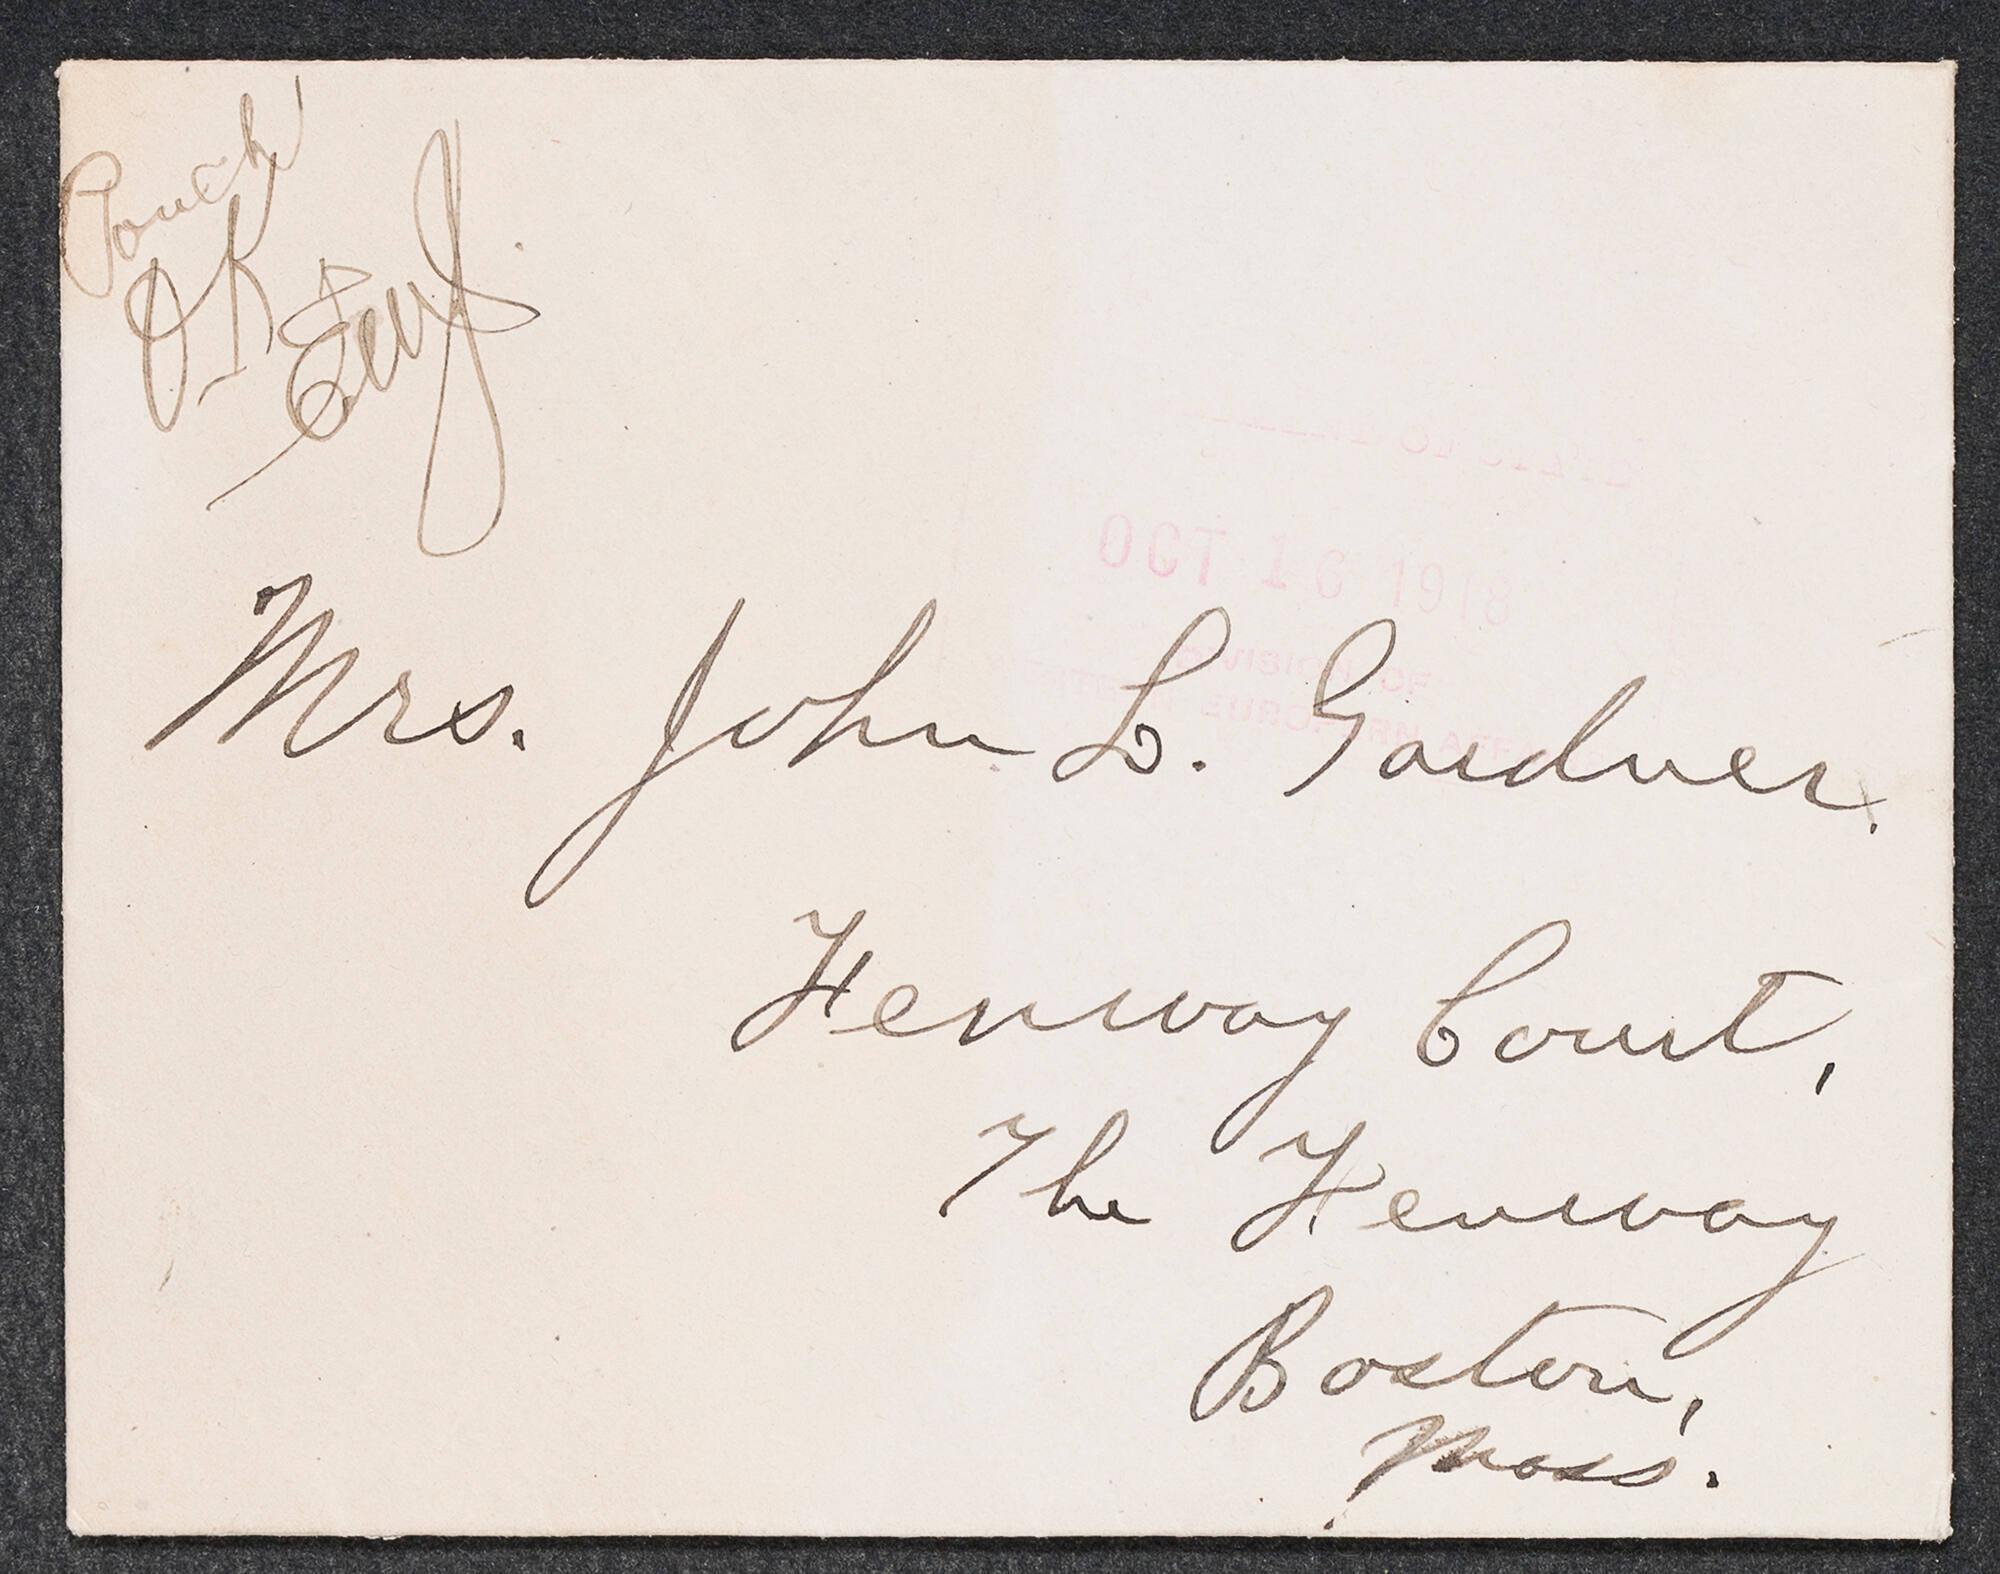 Pouch
OK
OCT 16 1918
DIVISION OF
EUROPEAN
Mrs. John L. Gardner.
Fenway Court,
The Fenway
Boston,
Mass.